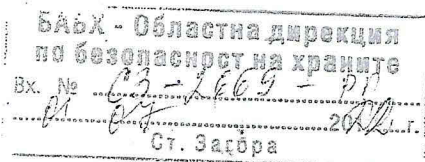 БАБХ - Областна дирекция
по безопасност на храните
Вх. № СЗ-2669-
01 07 2022 г.
Ст. Загора